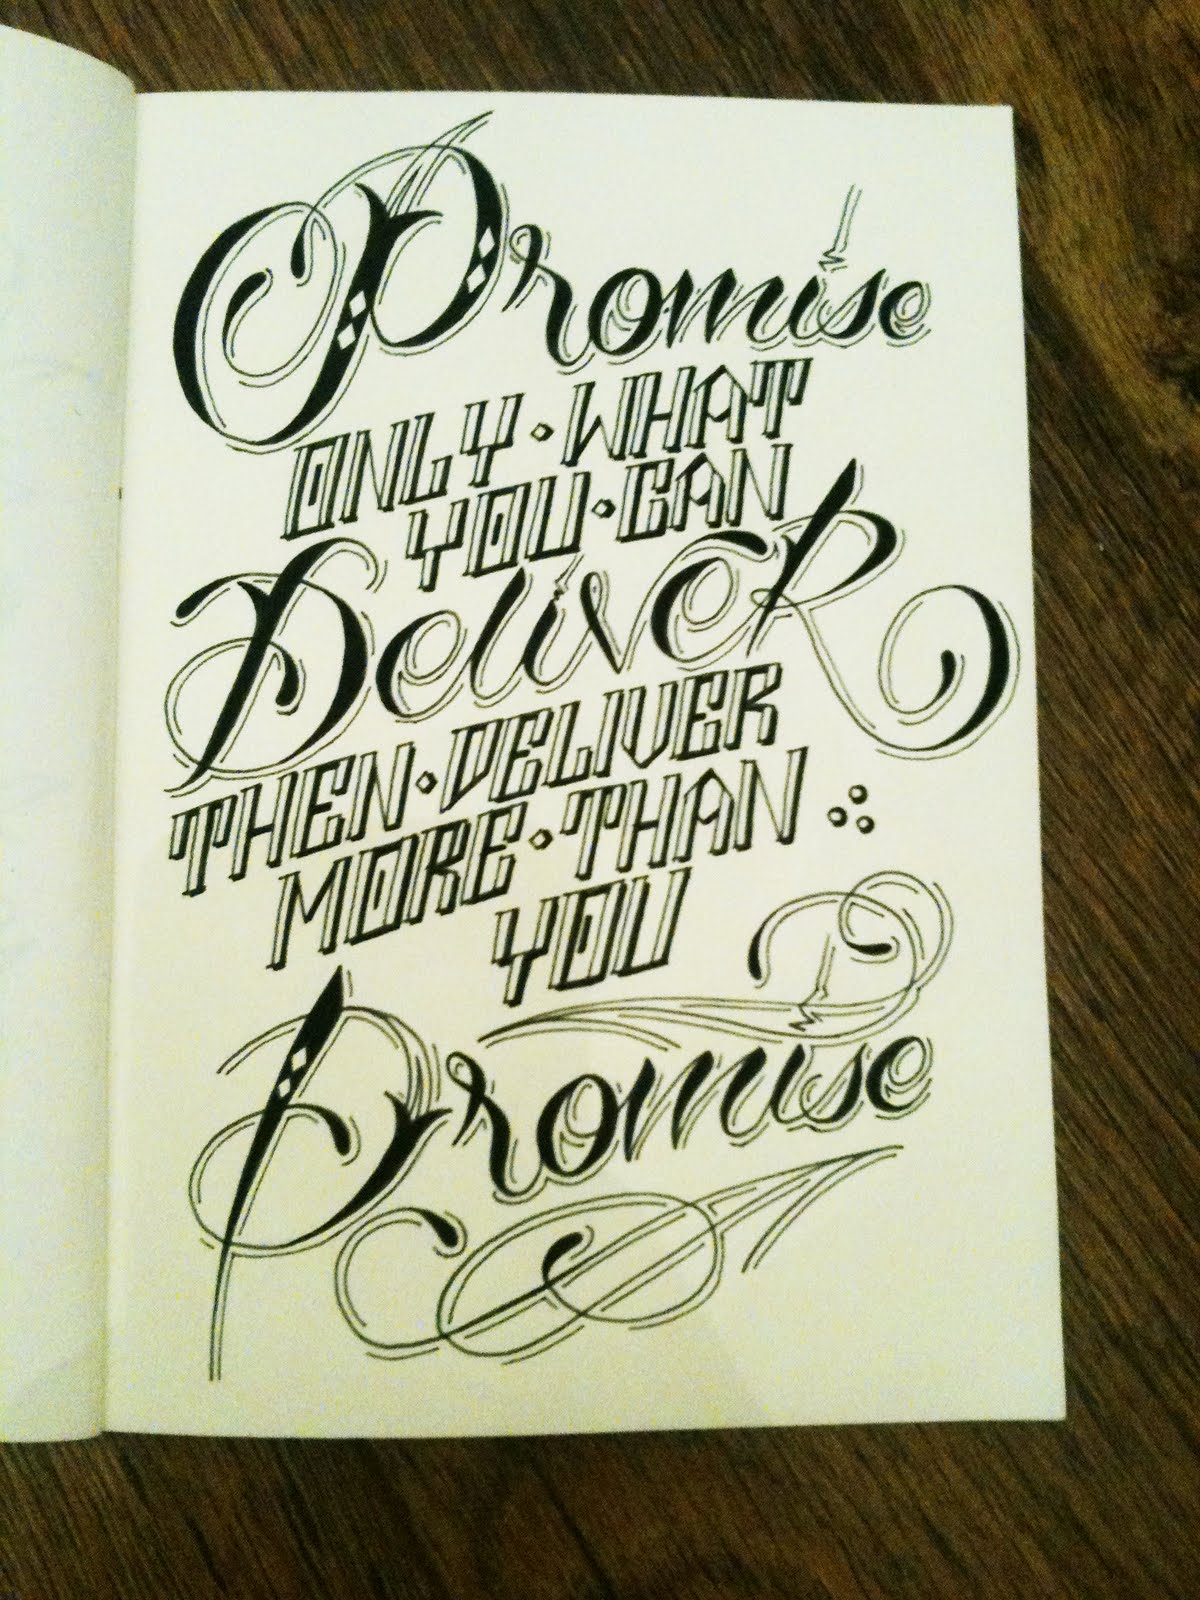 Promise
ONLY·WHAT
YOU·CAN
DeliveR
THEN·DELIVER
MORE·THAN
YOU
Promise